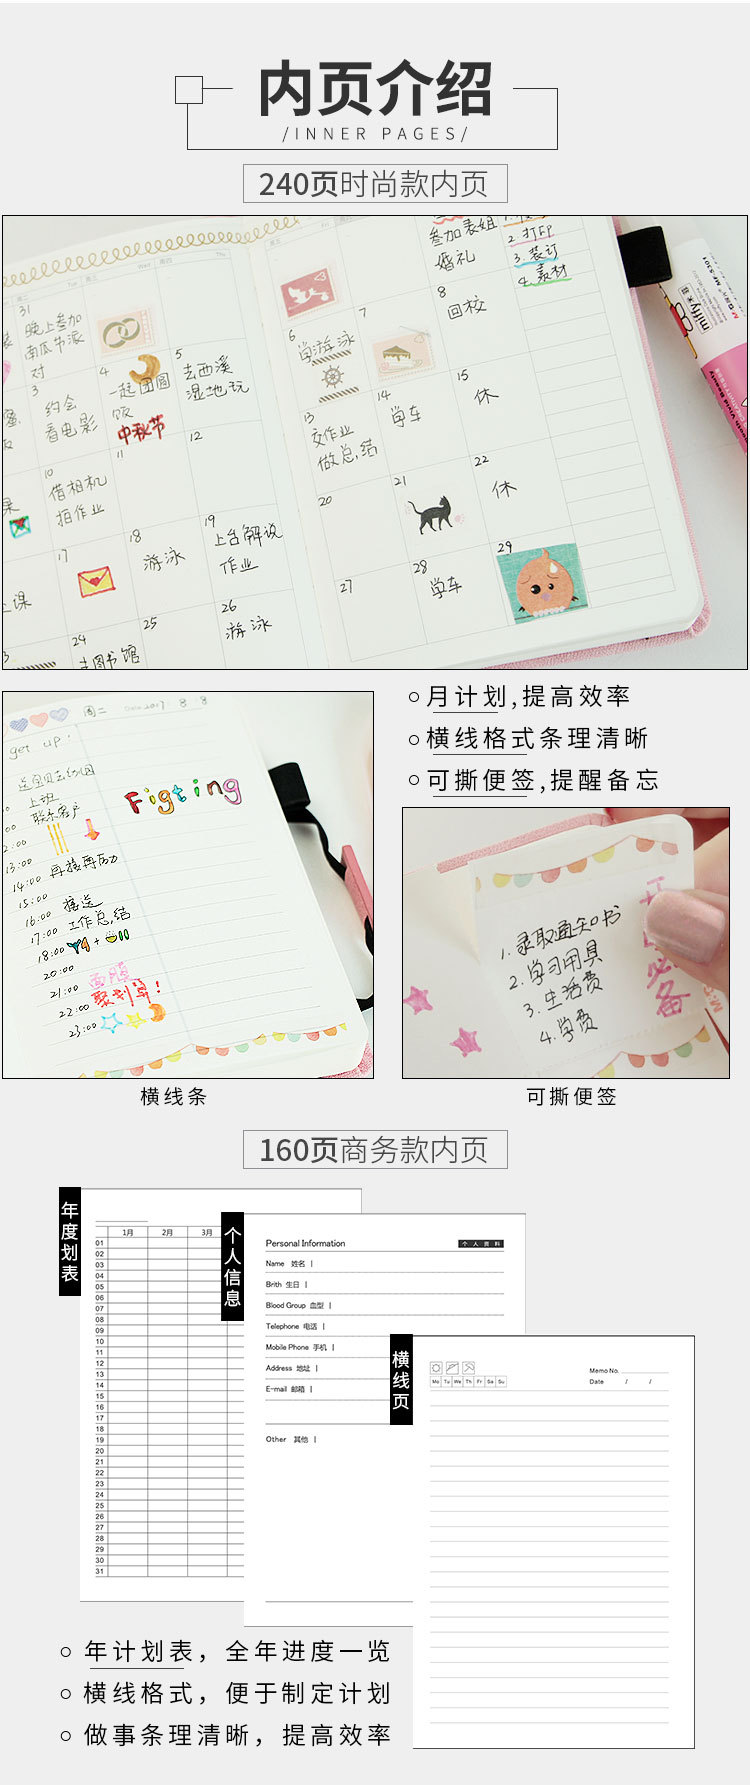 内页介绍
/INNER PAGES/
240页时尚款内页
Tue 周三
Wed 周四
Thu
Fri
31
晚上参加
南瓜节派
对
3
约会
看电影
4
一起团圆
饭
中秋节
5
去西溪
湿地玩
10
借相机
拍作业
11
12
17
18
游泳
19
上台解说
作业
24
去图书馆
25
26
游泳
参加表姐
婚礼
2.打印
3.装订
4.素材
6
尚游泳
7
8
回校
13
交作业
做总结
14
学车
15
休
20
21
22
休
27
28
学车
29
miffy米菲
月计划,提高效率
横线格式条理清晰
可撕便签,提醒备忘
周二
Date 2017. 8. 8
get up:
上班
联系客户
Figting
13:00
14:00 再接再厉
15:00
16:00 接送
17:00 工作总结
18:00
20:00
21:00 面膜
22:00 聚划算!
23:00
横线条
1.录取通知书
2.学习用具
3.生活费
4.学费
必备
可撕便签
160页商务款内页
年度划表
1月 2月 3月
01
02
03
04
05
06
07
08
09
10
11
12
13
14
15
16
17
18
19
20
21
22
23
24
25
26
27
28
29
30
31
个人信息
Personal Information 个人资料
Name 姓名
Brith 生日
Blood Group 血型
Telephone 电话
Mobile Phone 手机
Address 地址
E-mail 邮箱
Other 其他
横线页
Memo No.
Mo Tu We Th Fr Sa Su
Date / /
年计划表，全年进度一览
横线格式，便于制定计划
做事条理清晰，提高效率